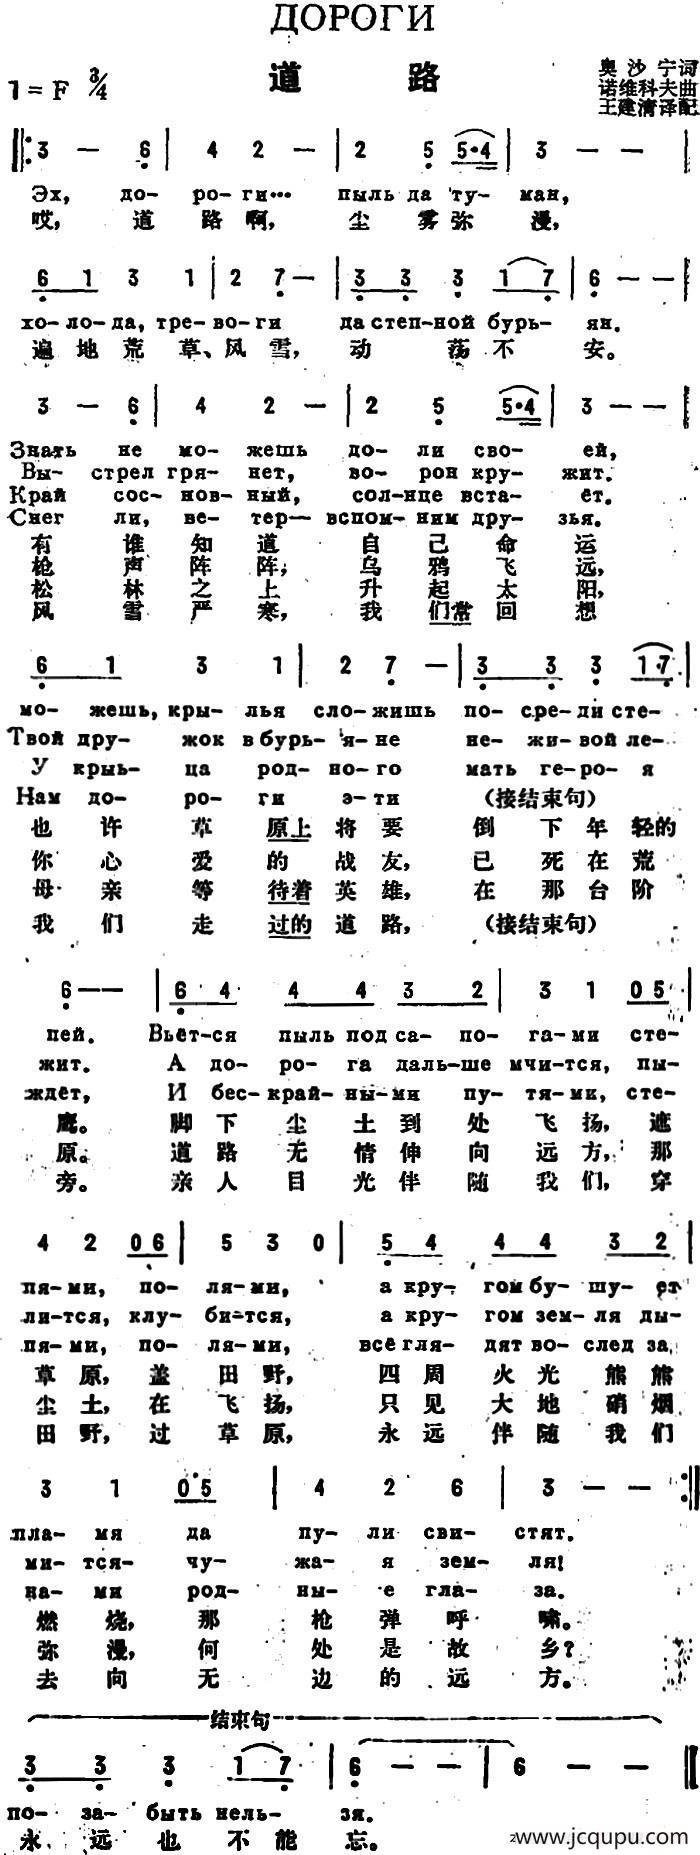 ДОРОГИ
道 路
1=F 3/4
奥 沙 宁词
诺维科夫曲
王建清译配
3 — 6 | 4 2 — | 2 5 5·4 | 3 — —
Эх, до- ро- ги··· пыль да ту- ман,
哎, 道 路 啊, 尘 雾 弥 漫,
6 1 3 1 | 2 7 — | 3 3 3 1 7 | 6 — —
хо- ло- да, тре- во- ги да степ-ной бурь- ян.
遍 地 荒 草、风 雪, 动 荡 不 安。
3 — 6 | 4 2 — | 2 5 5·4 | 3 — —
Знать не мо- жешь до- ли сво- ей,
Вы- стрел гря- нет, во- рон кру- жит.
Край сос- нов- ный, сол-нце вста- ёт.
Снег ли, ве- тер— вспом- ним дру- зья.
有 谁 知 道 自 己 命 运
枪 声 阵 阵, 乌 鸦 飞 远,
松 林 之 上 升 起 太 阳,
风 雪 严 寒, 我 们常 回 想
6 1 3 1 | 2 7 — | 3 3 3 1·7
мо- жешь, кры- лья сло-жишь по- сре-ди сте-
Твой дру- жок в бурь- я-не не- жи-вой ле-
У крыь- ца род- но-го мать ге-ро-я
Нам до- ро- ги э-ти (接结束句)
也 许 草 原上 将 要 倒 下 年 轻的
你 心 爱 的 战 友, 已 死 在 荒
母 亲 等 待着 英 雄, 在 那 台 阶
我 们 走 过的 道 路, (接结束句)
6 — — | 6 4 4 4 3 2 | 3 1 05
пей. Вьёт-ся пыль под са- по- га- ми сте-
жит. А до- ро- га даль-ше мчит-ся, пы-
ждёт, И бес-край-ны-ми пу- тя-ми, сте-
鹰。 脚 下 尘 土 到 处 飞 扬, 遮
原。 道 路 无 情 伸 向 远 方, 那
旁。 亲 人 目 光 伴 随 我 们, 穿
4 2 06 | 5 3 0 | 5 4 4 4 3 2
пя- ми, по- ля- ми, а кру- гом бу- шу- ет
лит-ся, клу- бит-ся, а кру- гом зем- ля ды-
пя- ми, по- ля- ми, всё гля- дят во- след за,
草 原, 盖 田 野, 四 周 火 光 熊 熊
尘 土, 在 飞 扬, 只 见 大 地 硝 烟
田 野, 过 草 原, 永 远 伴 随 我 们
3 1 05 | 4 2 6 | 3 —
пла- мя да пу- ли сви- стят.
мит- ся- чу- жа- я зем- ля!
на- ми род- ны- е гла- за.
燃 烧, 那 枪 弹 呼 啸。
弥 漫, 何 处 是 故 乡?
去 向 无 边 的 远 方。
结束句
3 3 3 1 7 | 6 — — | 6 — —
по- за- быть нель- зя.
永 远 也 不 能 忘。
www.jcqupu.com